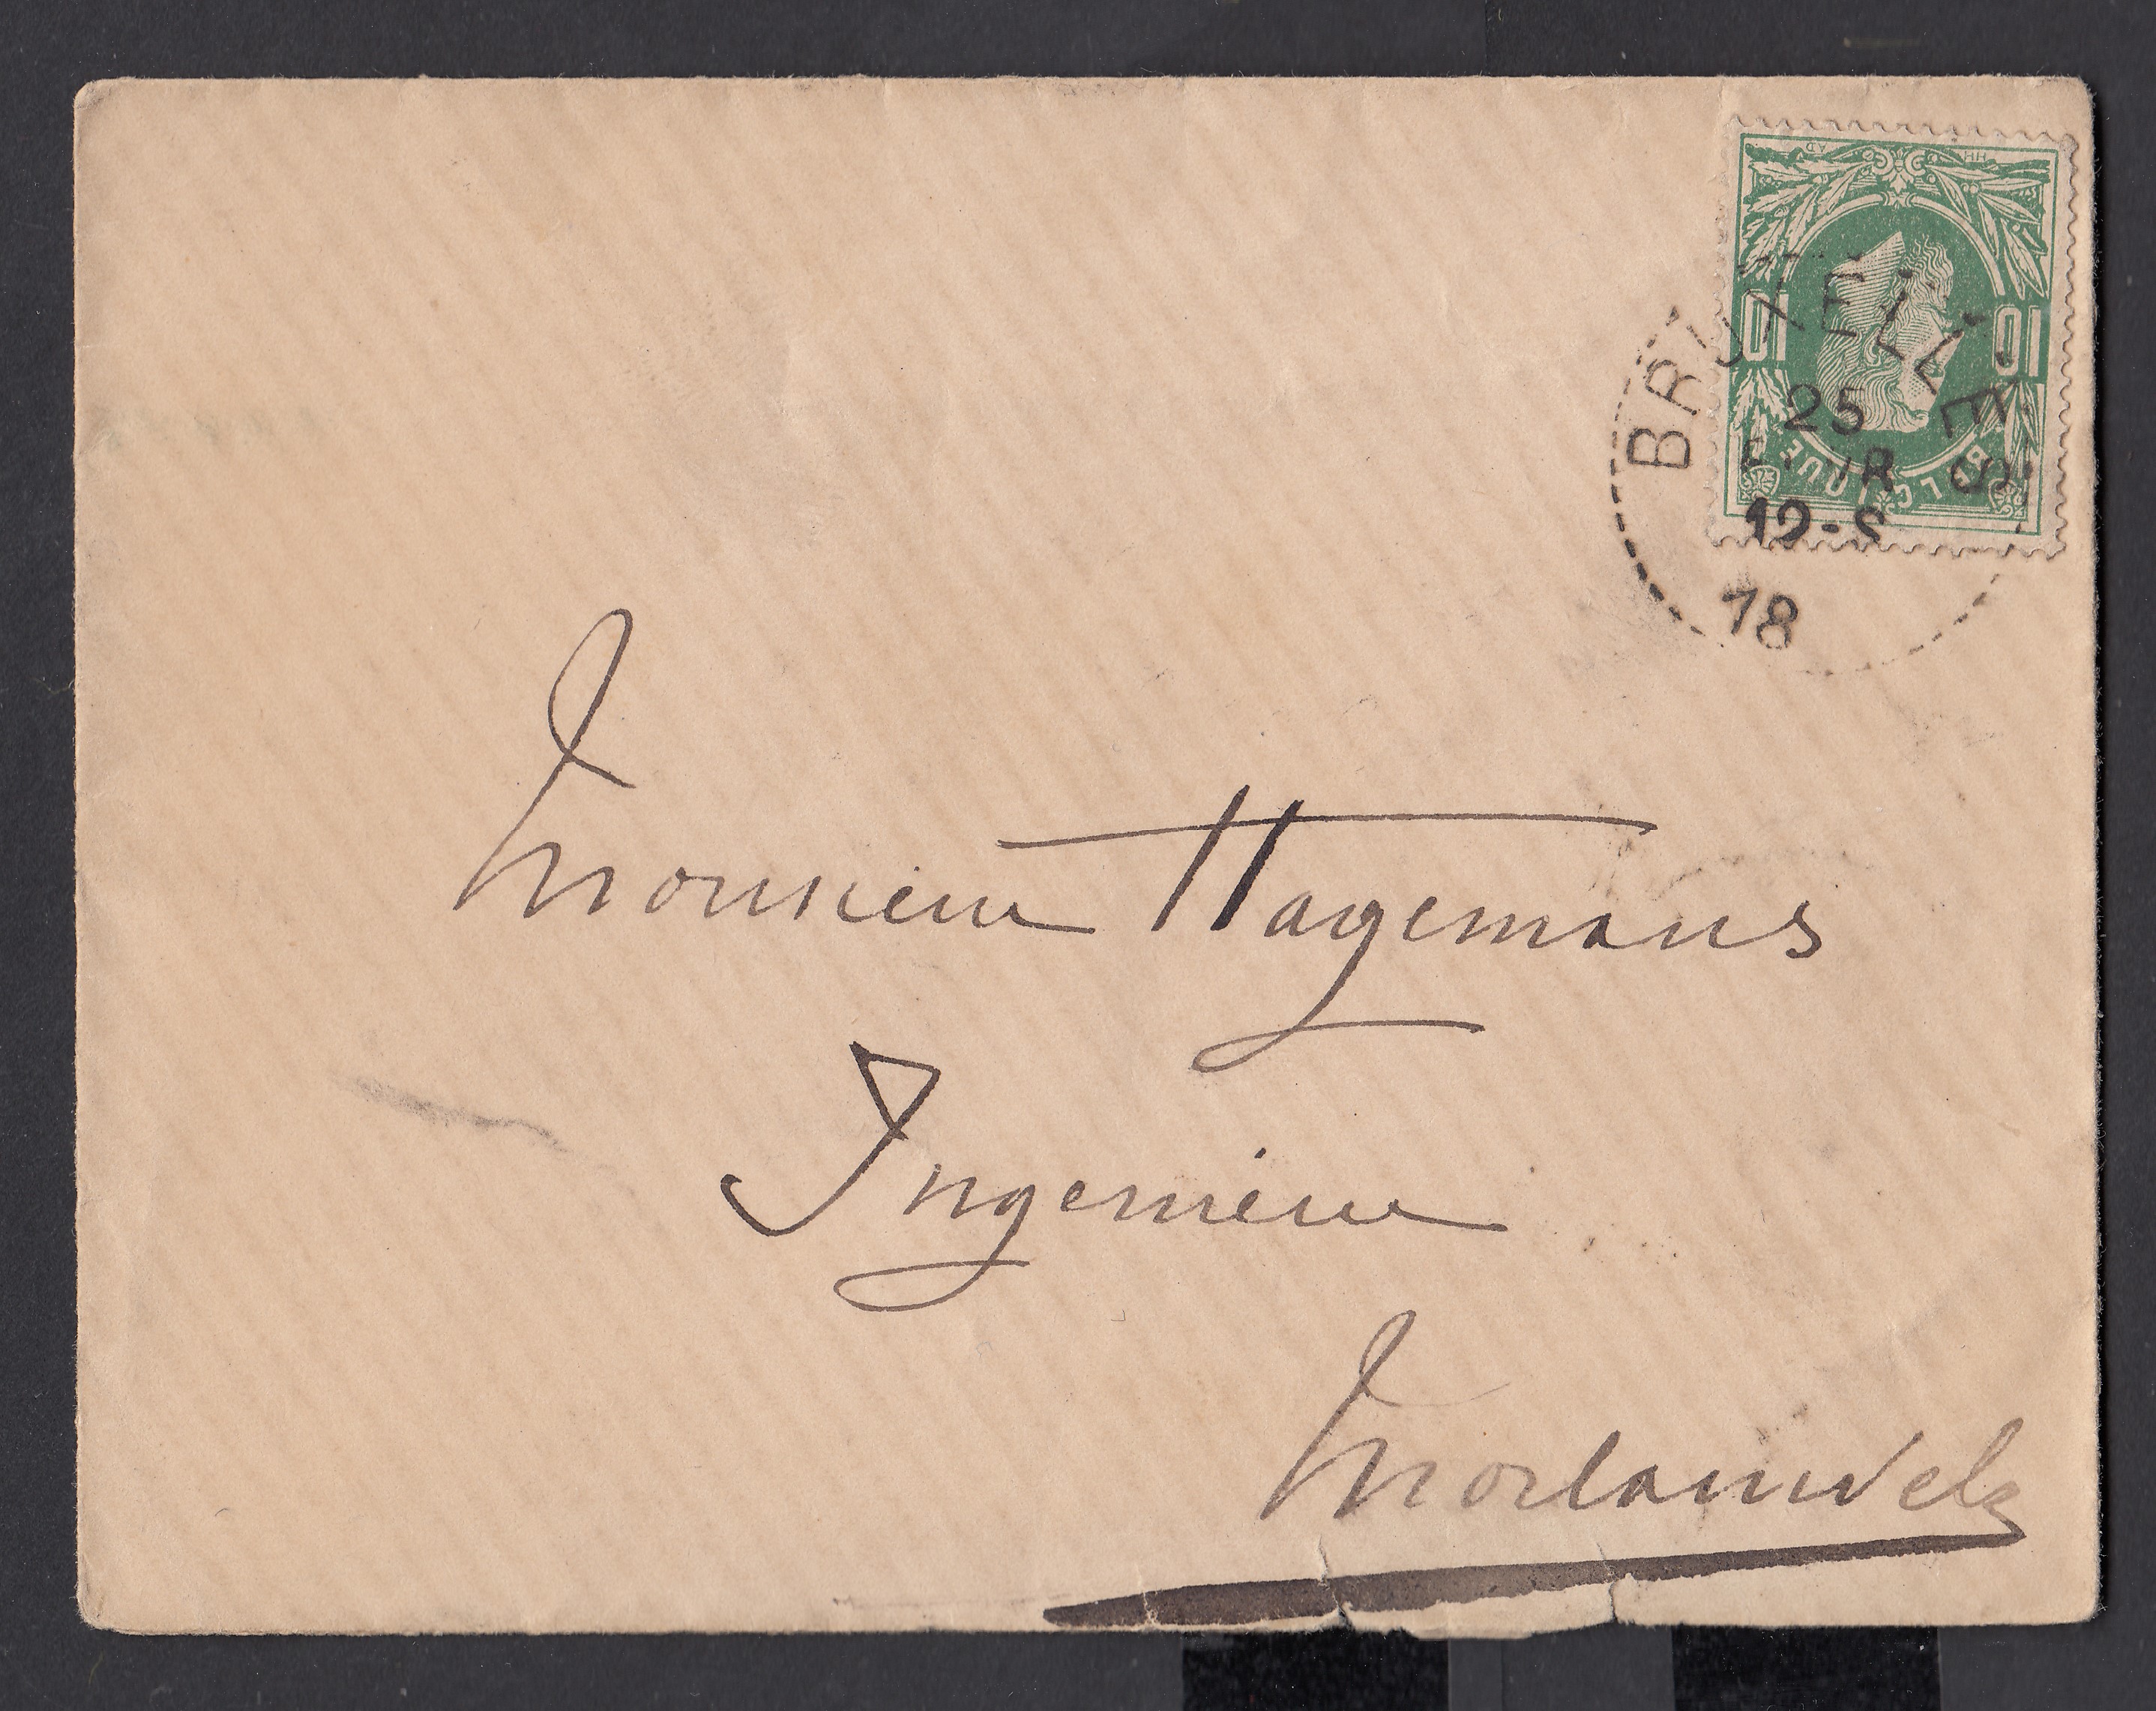 BRUXELLES
25
12-S
78
10 10
BELGIQUE
Monsieur Hagemans
Ingenieur
Morlanwelz